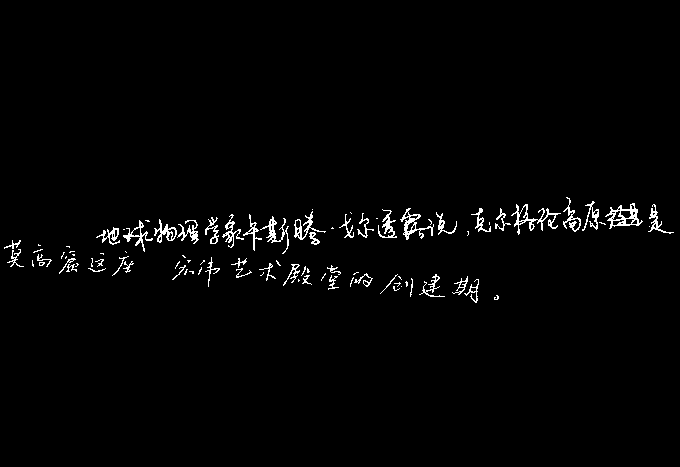 地球物理学家卡斯腾·戈尔透露说,克尔格伦高原是
莫高窟这座 宏伟艺术殿堂的创建期。